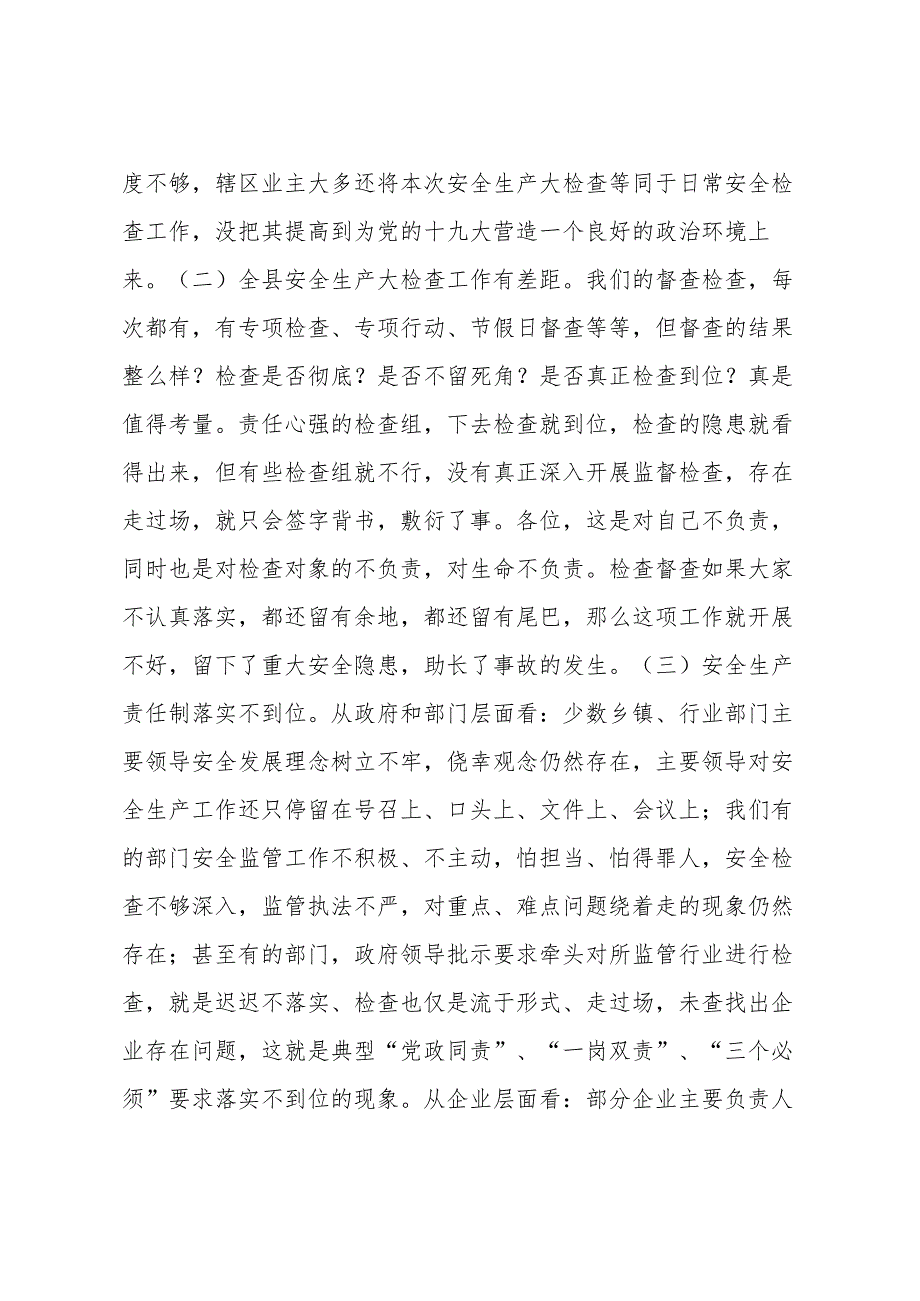 度不够，辖区业主大多还将本次安全生产大检查等同于日常安全检
查工作，没把其提高到为党的十九大营造一个良好的政治环境上
来。（二）全县安全生产大检查工作有差距。我们的督查检查，每
次都有，有专项检查、专项行动、节假日督查等等，但督查的结果
整么样？检查是否彻底？是否不留死角？是否真正检查到位？真是
值得考量。责任心强的检查组，下去检查就到位，检查的隐患就看
得出来，但有些检查组就不行，没有真正深入开展监督检查，存在
走过场，就只会签字背书，敷衍了事。各位，这是对自己不负责，
同时也是对检查对象的不负责，对生命不负责。检查督查如果大家
不认真落实，都还留有余地，都还留有尾巴，那么这项工作就开展
不好，留下了重大安全隐患，助长了事故的发生。（三）安全生产
责任制落实不到位。从政府和部门层面看：少数乡镇、行业部门主
要领导安全发展理念树立不牢，侥幸观念仍然存在，主要领导对安
全生产工作还只停留在号召上、口头上、文件上、会议上；我们有
的部门安全监管工作不积极、不主动，怕担当、怕得罪人，安全检
查不够深入，监管执法不严，对重点、难点问题绕着走的现象仍然
存在；甚至有的部门，政府领导批示要求牵头对所监管行业进行检
查，就是迟迟不落实、检查也仅是流于形式、走过场，未查找出企
业存在问题，这就是典型“党政同责”、“一岗双责”、“三个必
须”要求落实不到位的现象。从企业层面看：部分企业主要负责人